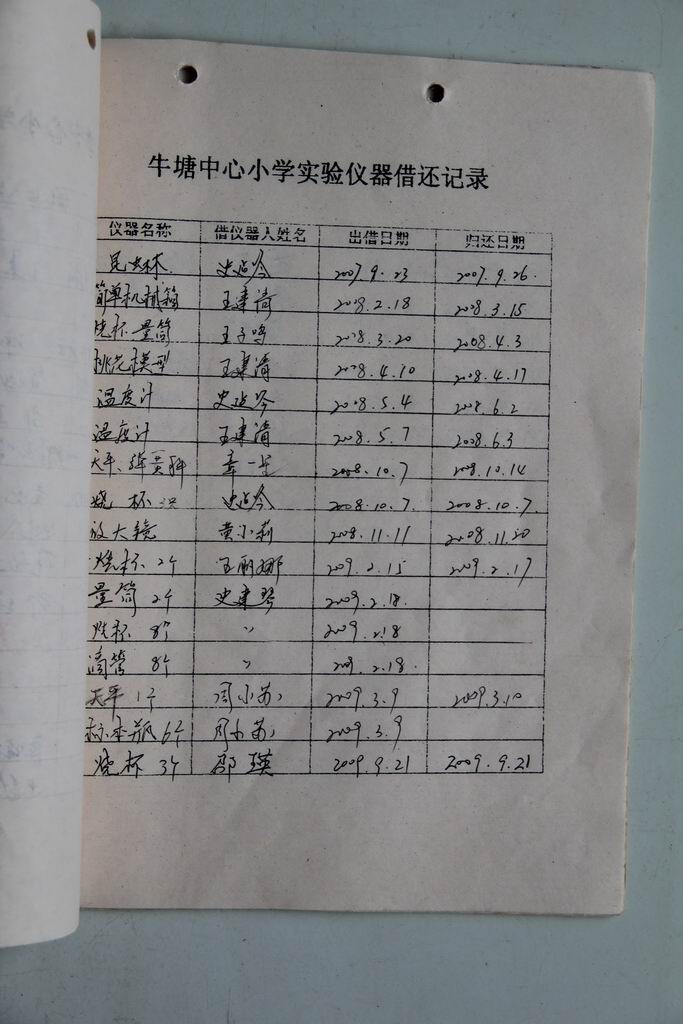 牛塘中心小学实验仪器借还记录
仪器名称 借仪器人姓名 出借日期 归还日期
昆虫标 2007.9.23 2007.9.26.
简单机械箱 王建清 2008.2.18 2008.3.15
烧杯.量筒 王子鸣 2008.3.20 2008.4.3
桃花模型 王建清 2008.4.10 2008.4.17
温度计 2008.5.4 2008.6.2
温度计 王建清 2008.5.7 2008.6.3
天平、 章一 2008.10.7 2008.10.14
烧杯 2008.10.7. 2008.10.7.
放大镜 黄小莉 2008.11.11 2008.11.20
烧杯 2个 王丽娜 2009.2.15 2009.2.17
量筒 2个 史建琴 2009.2.18.
烧杯 8个 〃 2009.2.18
滴管 8个 〃 2009.2.18.
天平 1个 周小苏 2009.3.9 2009.3.10
标本瓶 6个 周小苏 2009.3.9
烧杯 3个 邵瑛 2009.9.21 2009.9.21